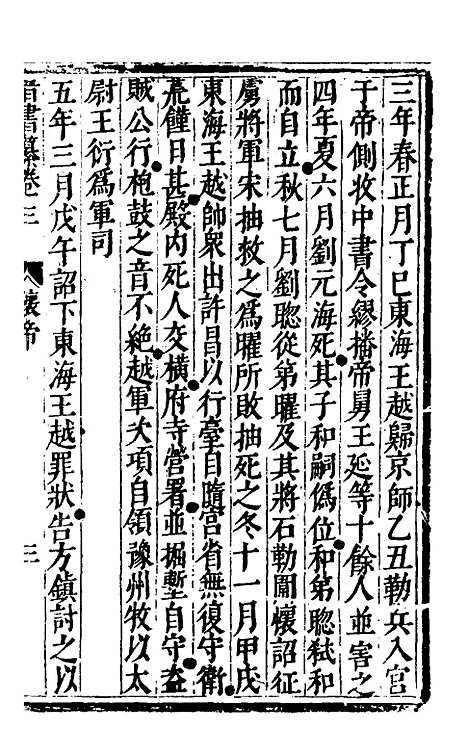 三年春正月丁巳東海王越歸京師乙丑勒兵入宮
于帝側收中書令繆播帝舅王延等十餘人並害之
四年夏六月劉元海死其子和嗣偽位和第聦弑和
而自立秋七月劉聦從第曜及其將石勒圍懷詔征
虜將軍宋抽救之為曜所敗抽死之冬十一月甲戌
東海王越帥衆出許昌以行臺自隨宫省無復守衛
荒饉日甚殿内死人交横府寺營署並掘塹自守盗
賊公行枹鼓之音不絶越軍次項自領豫州牧以太
尉王衍為軍司
五年三月戊午詔下東海王越罪狀告方鎮討之以
晋書纂卷三 懷帝 三